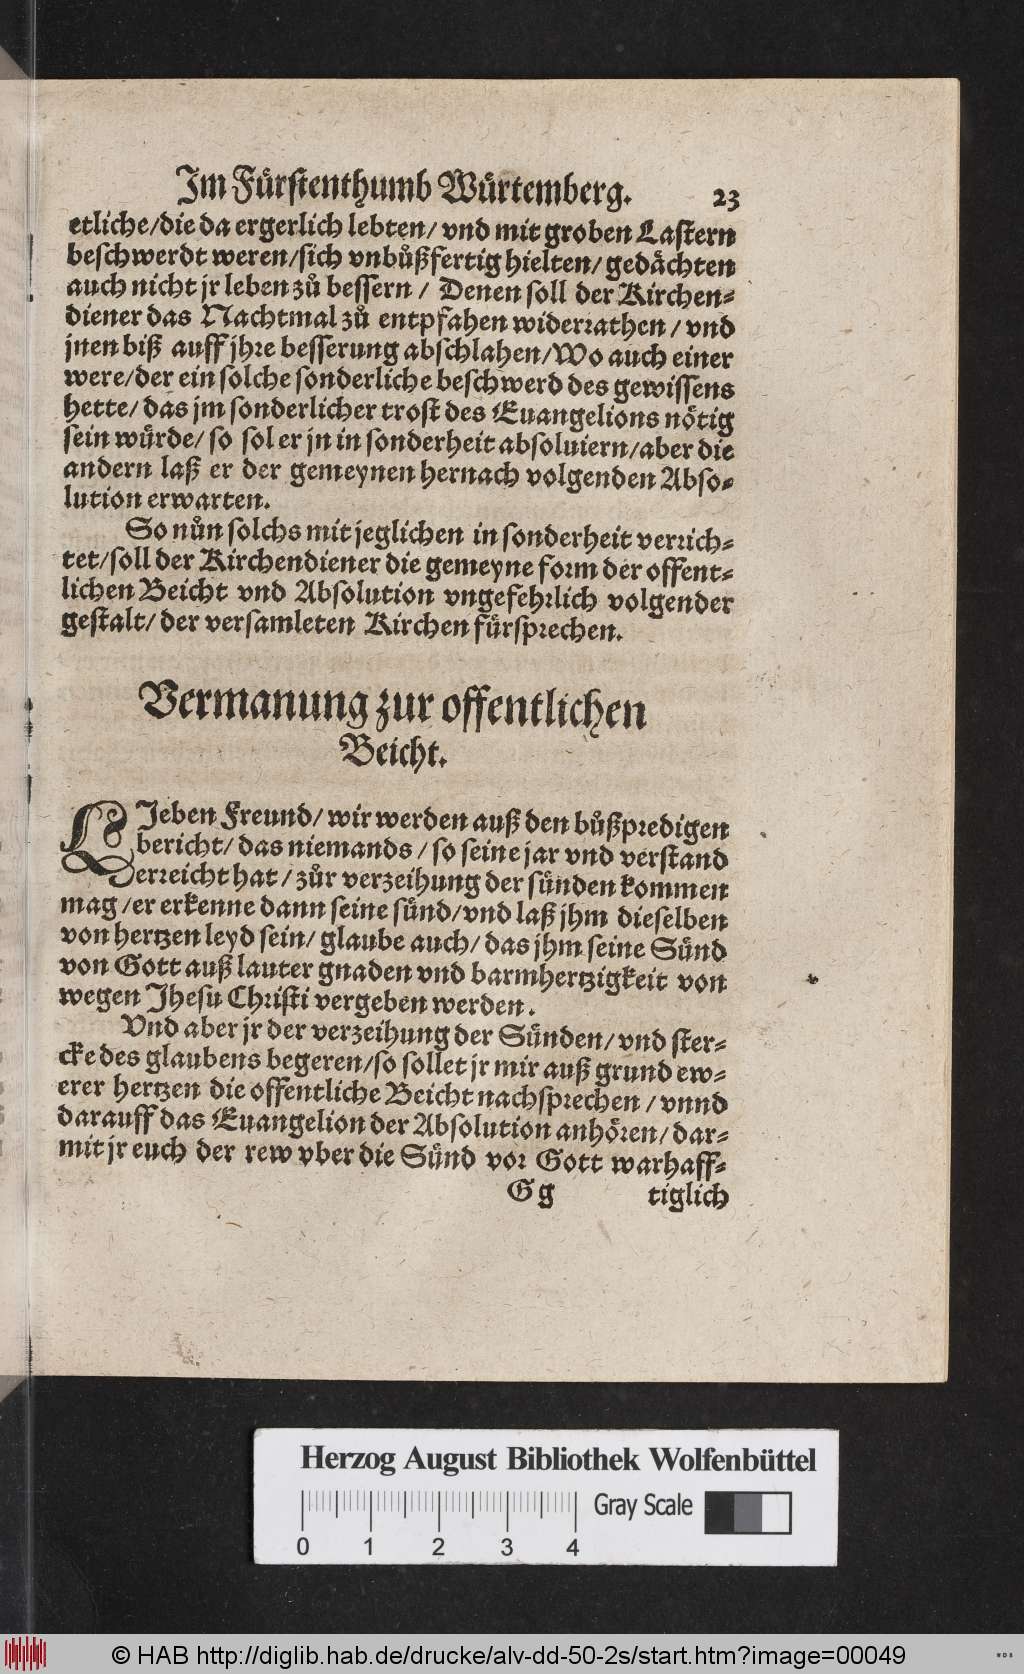 Im Fürstenthumb Würtemberg. 23
etliche/die da ergerlich lebten/ vnd mit groben Lastern
beschwerdt weren/sich vnbůßfertig hielten/ gedächten
auch nicht jr leben zů bessern / Denen soll der Kirchen-
diener das Nachtmal zů entpfahen widerrathen / vnd
jnen biß auff jhre besserung abschlahen/Wo auch einer
were/der ein solche sonderliche beschwerd des gewissens
hette/ das jm sonderlicher trost des Euangelions nötig
sein würde/ so sol er jn in sonderheit absoluiern/aber die
andern laß er der gemeynen hernach volgenden Abso-
lution erwarten.
So nůn solchs mit jeglichen in sonderheit verrich-
tet/soll der Kirchendiener die gemeyne form der offent-
lichen Beicht vnd Absolution vngefehrlich volgender
gestalt/ der versamleten Kirchen fürsprechen.
Vermanung zur offentlichen
Beicht.
LIeben Freund/ wir werden auß den bůßpredigen
bericht/ das niemands / so seine jar vnd verstand
erreicht hat / zůr verzeihung der sünden kommen
mag /er erkenne dann seine sünd/vnd laß jhm dieselben
von hertzen leyd sein/ glaube auch/ das jhm seine Sünd
von Gott auß lauter gnaden vnd barmhertzigkeit von
wegen Jhesu Christi vergeben werden.
Vnd aber jr der verzeihung der Sünden/ vnd ster-
cke des glaubens begeren/so sollet jr mir auß grund ew-
erer hertzen die offentliche Beicht nachsprechen / vnnd
darauff das Euangelion der Absolution anhören/ dar-
mit jr euch der rew vber die Sünd vor Gott warhaff-
Gg tiglich
Herzog August Bibliothek Wolfenbüttel
Gray Scale
0 1 2 3 4
© HAB http://diglib.hab.de/drucke/alv-dd-50-2s/start.htm?image=00049